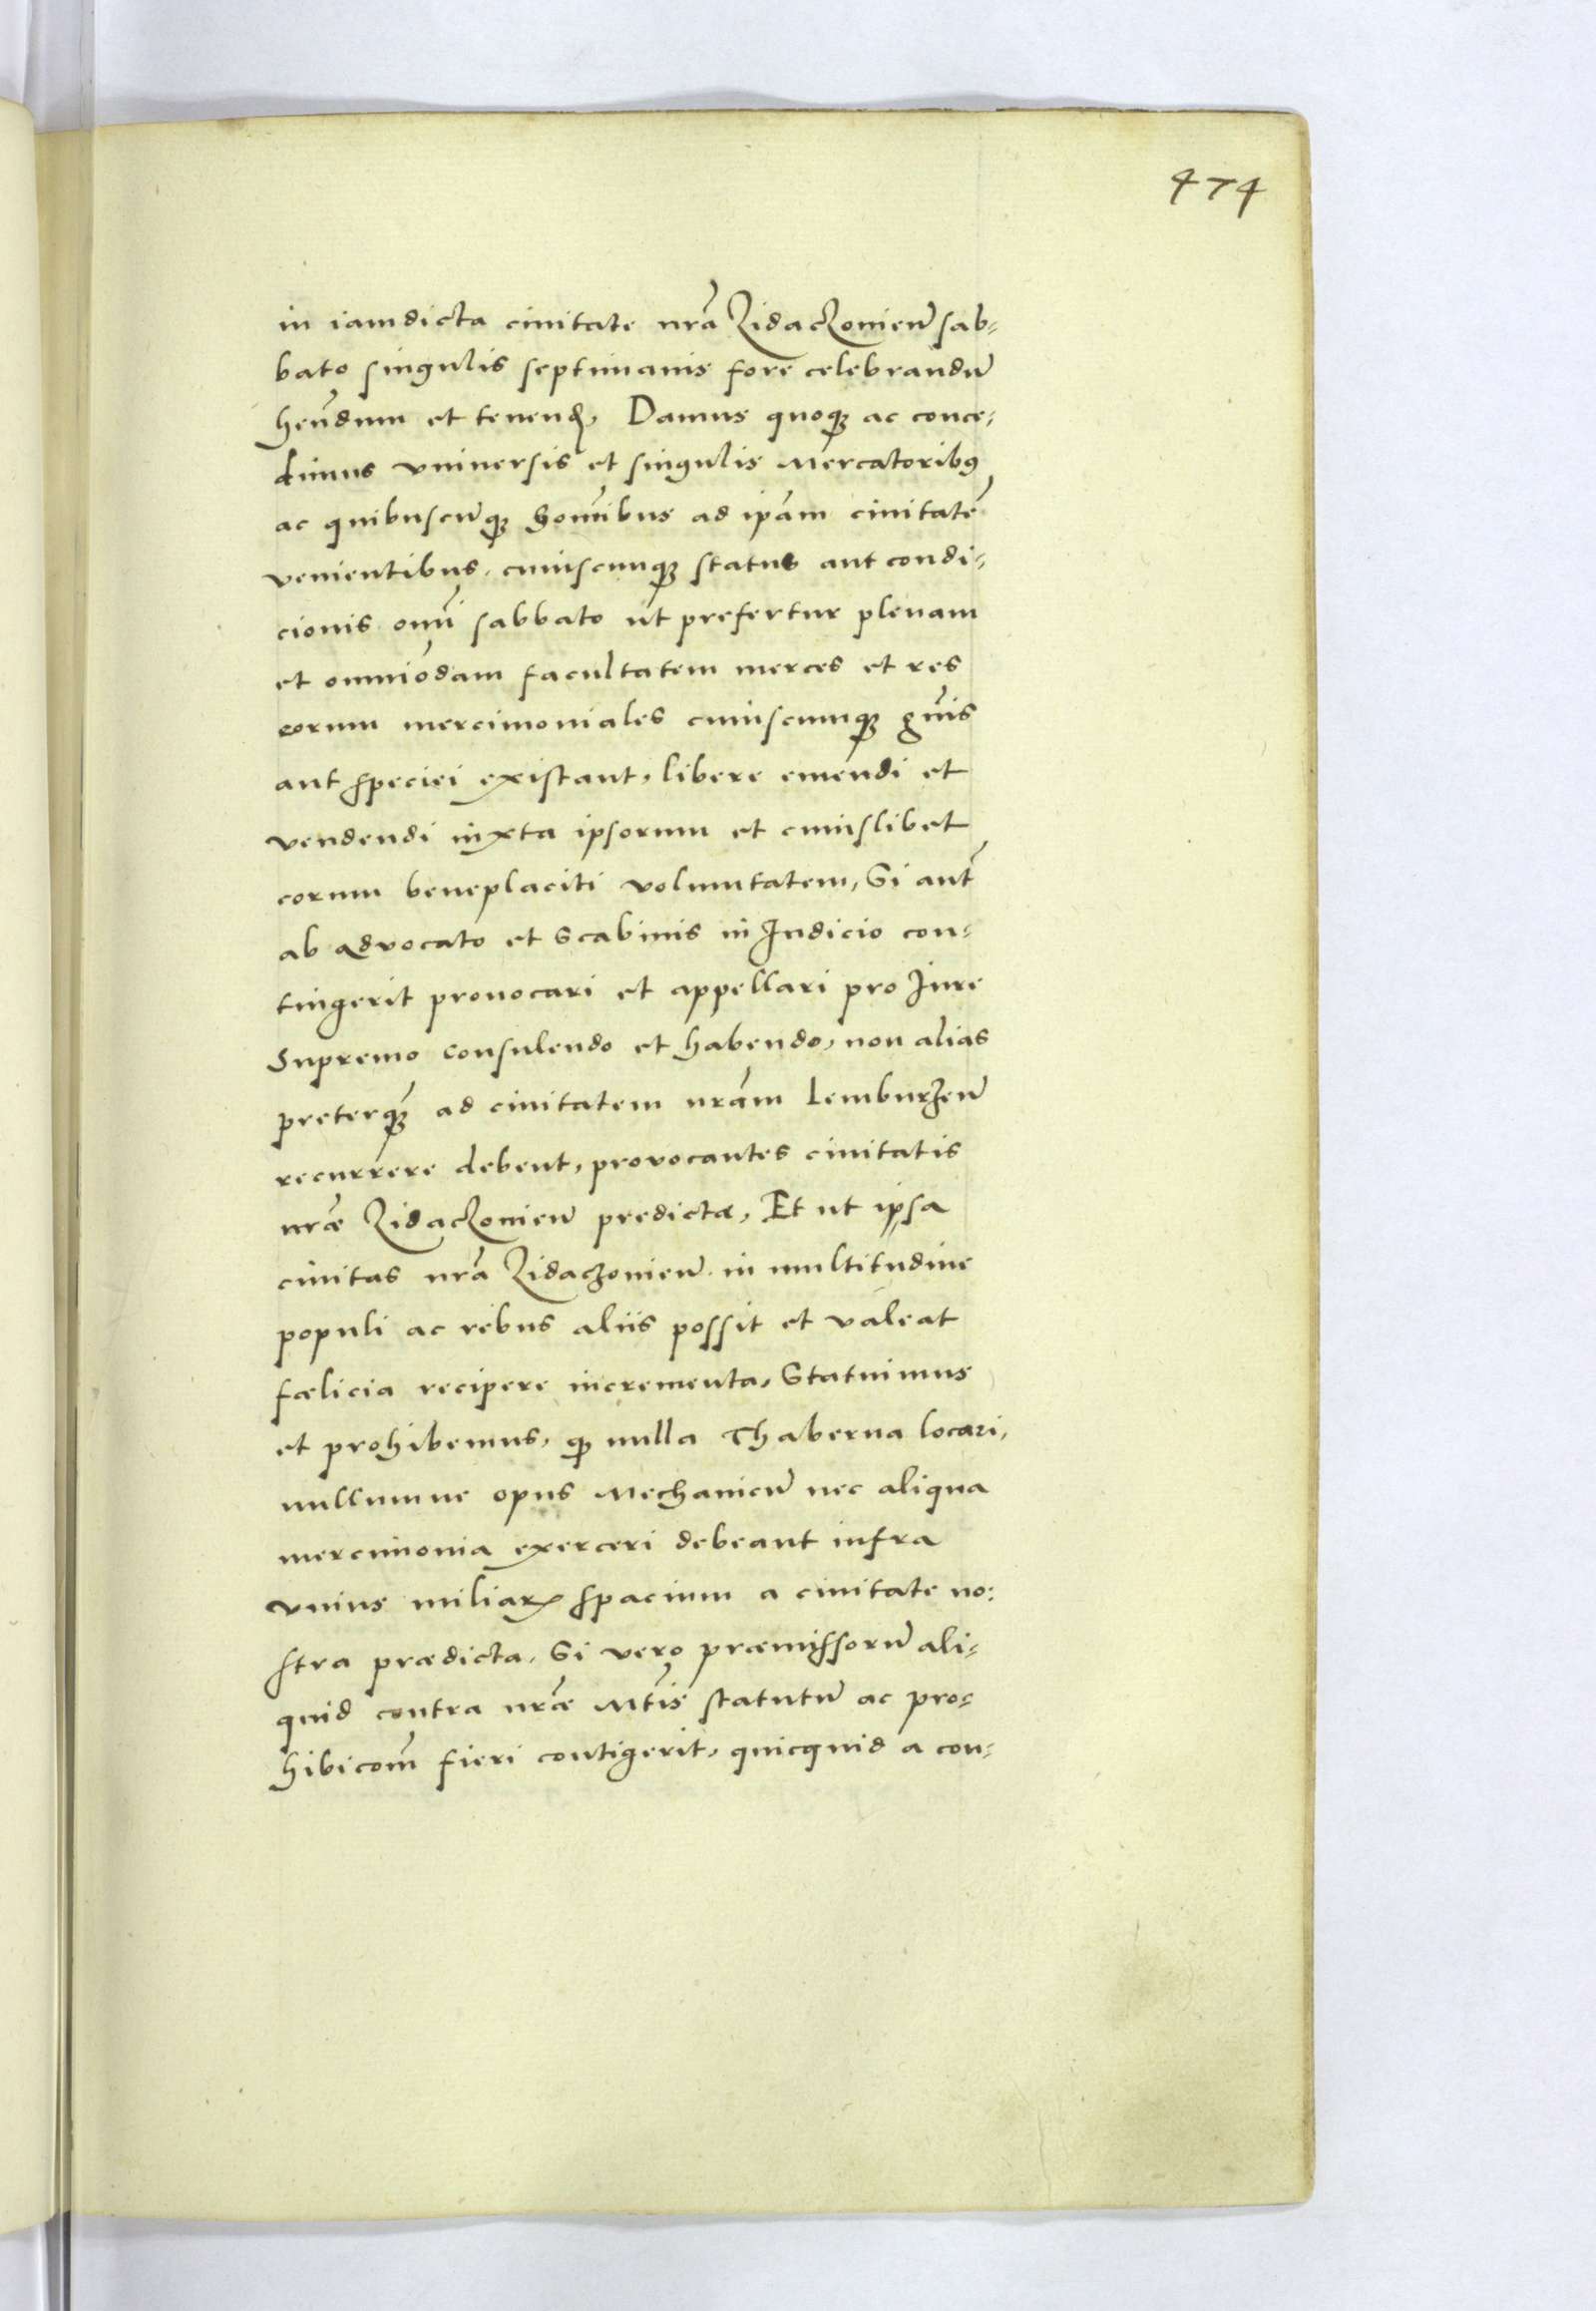 474
in iamdicta civitate nrã Zidaczonieñ sab-
bato singulis septimanis fore celebrandũ
heñdum et tenend, Damus quoqȝ ac conce-
dimus vniversis et singulis Mercatoribꝰ
ac quibuscũqȝ homĩbus ad ip̃am civitatẽ
venientibus, cuiuscunqȝ status aut condi-
cionis omĩ sabbato ut prefertur plenam
et omniõdam facultatem merces et res
eorum mercimoniales cuiuscumqȝ gñis
aut speciei existant, libere emendi et
vendendi iuxta ipsorum et cuiuslibet
eorum beneplaciti voluntatem, Si aut̃
ab advocato et Scabinis in Iudicio con-
tingerit provocari et appellari pro Iure
Supremo consulendo et habendo, non alias
preterqȝ̃ ad civitatem nrãm Lemburgeñ
recurrere debent, provocantes civitatis
nræ̃ Zidaczonieñ predictæ, Et ut ipsa
civitas nrã Zidaczonieñ in multitudine
populi ac rebus aliis possit et valeat
fælicia recipere incrementa, Statuimus
et prohibemus, qȝ nulla Thaberna locari,
nullumve opus Mechanicũ nec aliqua
mercimonia exerceri debeant infra
vnius miliarꝭ spacium a civitate no-
stra prædicta, Si vero præmissorũ ali-
quid contra nræ̃ Mt̃is statutũ ac pro-
hibicom̃ fieri contigerit, quicquid a con-